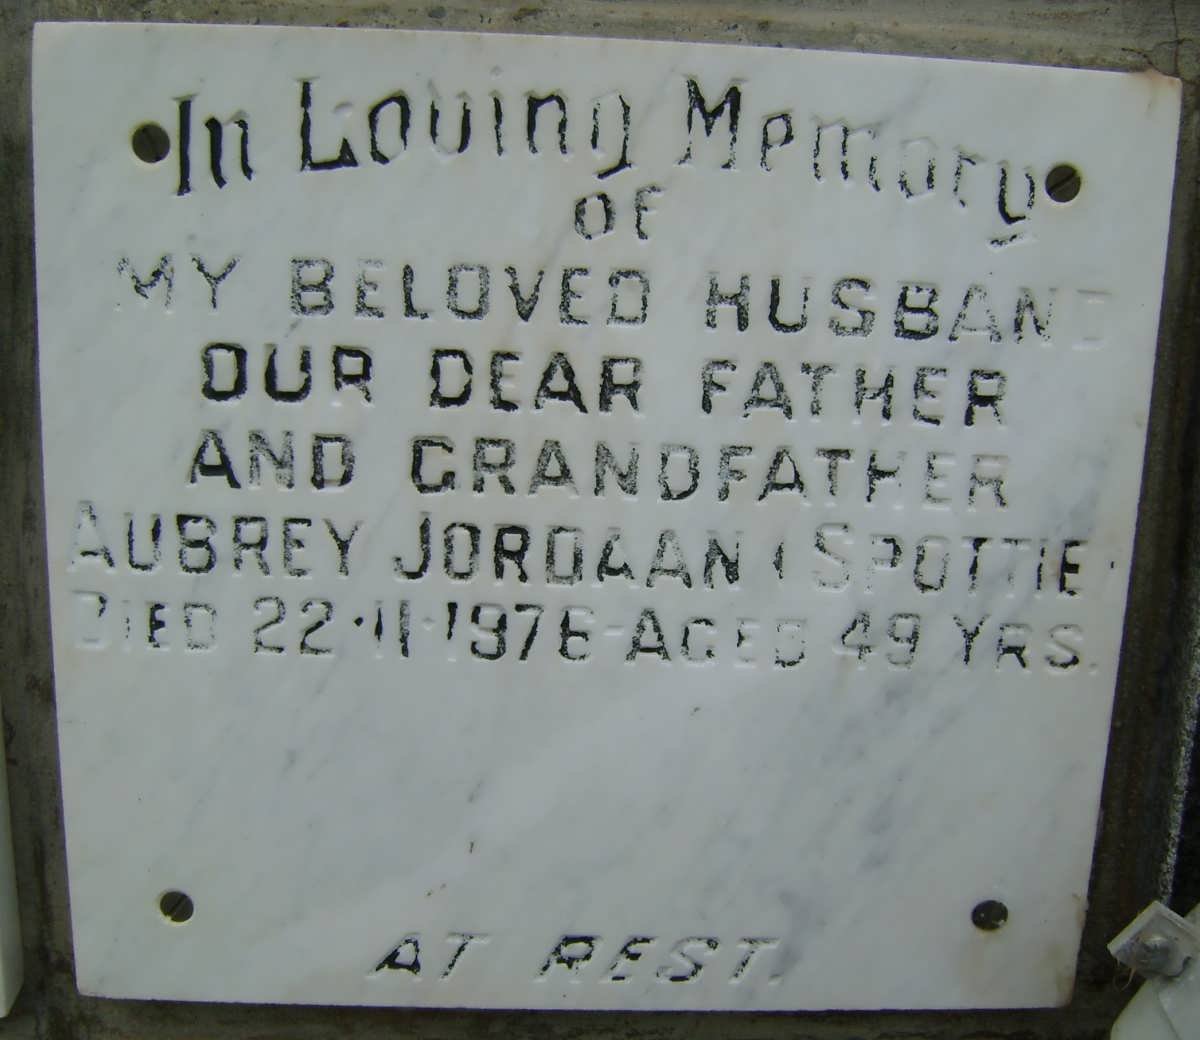 In Loving Memory
OF
MY BELOVED HUSBAND
OUR DEAR FATHER
AND GRANDFATHER
AUBREY JORDAAN (SPOTTIE)
DIED 22·11·1976-AGED 49 YRS.
AT REST.